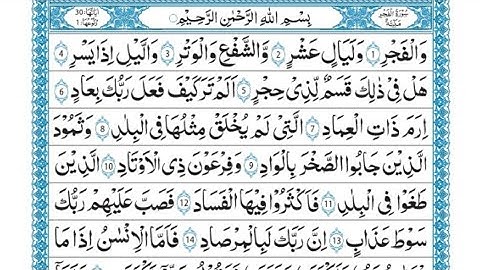 اٰیاتها 30 رکوعها 1 بِسْمِ اللّٰهِ الرَّحْمٰنِ الرَّحِیْمِ سُوْرَةُ الْفَجْرِ
وَالْفَجْرِ ۙ‏﴿1﴾ وَلَیَالٍ عَشْرٍ ۙ‏﴿2﴾ وَّالشَّفْعِ وَالْوَتْرِ ۙ‏﴿3﴾ وَالَّیْلِ اِذَا یَسْرِ ۚ‏﴿4﴾
هَلْ فِیْ ذٰلِكَ قَسَمٌ لِّذِیْ حِجْرٍ ؕ‏﴿5﴾ اَلَمْ تَرَ كَیْفَ فَعَلَ رَبُّكَ بِعَادٍ ۪ۙ‏﴿6﴾
اِرَمَ ذَاتِ الْعِمَادِ ۪ۙ‏﴿7﴾ الَّتِیْ لَمْ یُخْلَقْ مِثْلُهَا فِی الْبِلَادِ ۪ۙ‏﴿8﴾ وَثَمُوْدَ
الَّذِیْنَ جَابُوا الصَّخْرَ بِالْوَادِ ۪ۙ‏﴿9﴾ وَفِرْعَوْنَ ذِی الْاَوْتَادِ ۪ۙ‏﴿10﴾ الَّذِیْنَ
طَغَوْا فِی الْبِلَادِ ۪ۙ‏﴿11﴾ فَاَكْثَرُوْا فِیْهَا الْفَسَادَ ۪ۙ‏﴿12﴾ فَصَبَّ عَلَیْهِمْ رَبُّكَ
سَوْطَ عَذَابٍ ۚۙ‏﴿13﴾ اِنَّ رَبَّكَ لَبِالْمِرْصَادِ ؕ‏﴿14﴾ فَاَمَّا الْاِنْسَانُ اِذَا مَا